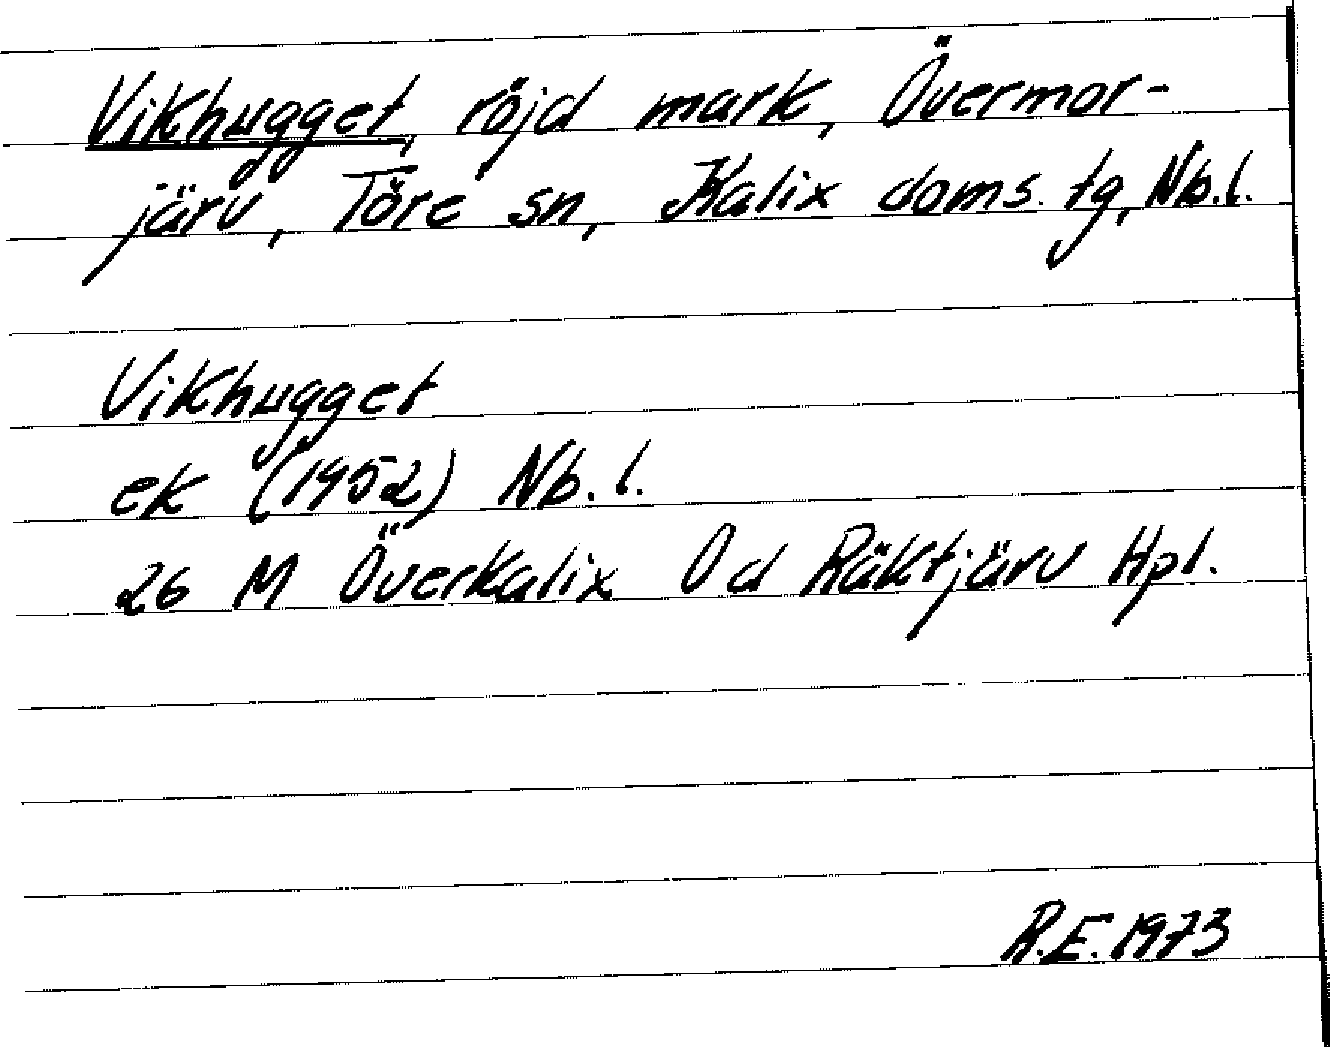 Vikhugget, röjd mark, Övermor-
järv, Töre sn, Kalix doms. tg, Nb.l.
Vikhugget
ek (1952) Nb.l.
26 M Överkalix Od Räktjärv Hpl.
R.E. 1973